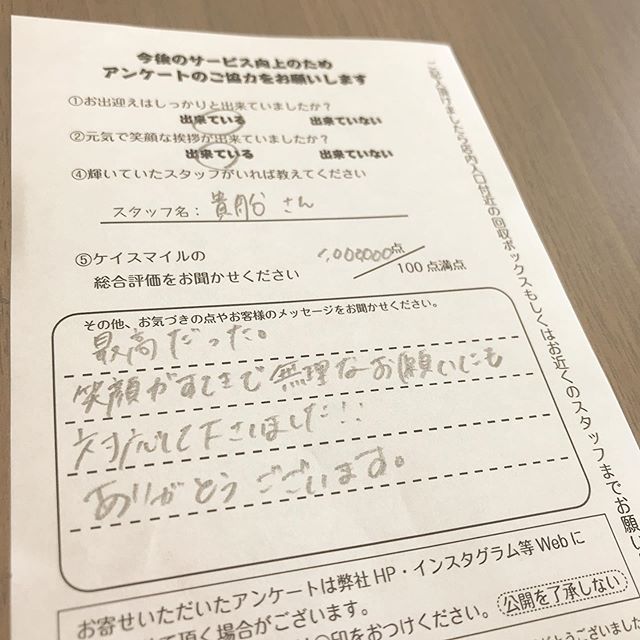 今後のサービス向上のため
アンケートのご協力をお願いします
①お出迎えはしっかりと出来ていましたか？
出来ている 出来ていない
②元気で笑顔な挨拶が出来ていましたか？
出来ている 出来ていない
④輝いていたスタッフがいれば教えてください
スタッフ名：貴船さん
⑤ケイスマイルの
総合評価をお聞かせください
1,000000点
100点満点
その他、お気づきの点やお客様のメッセージをお聞かせください。
最高だった。
笑顔がすてきで無理なお願いにも
対応して下さいました!!
ありがとうございます。
お寄せいただいたアンケートは弊社HP・インスタグラム等Webに
て頂く場合がございます。
印をおつけください。(公開を了承しない)
ご記入頂けましたら店内入口付近の回収ボックスもしくはお近くのスタッフまでお願い